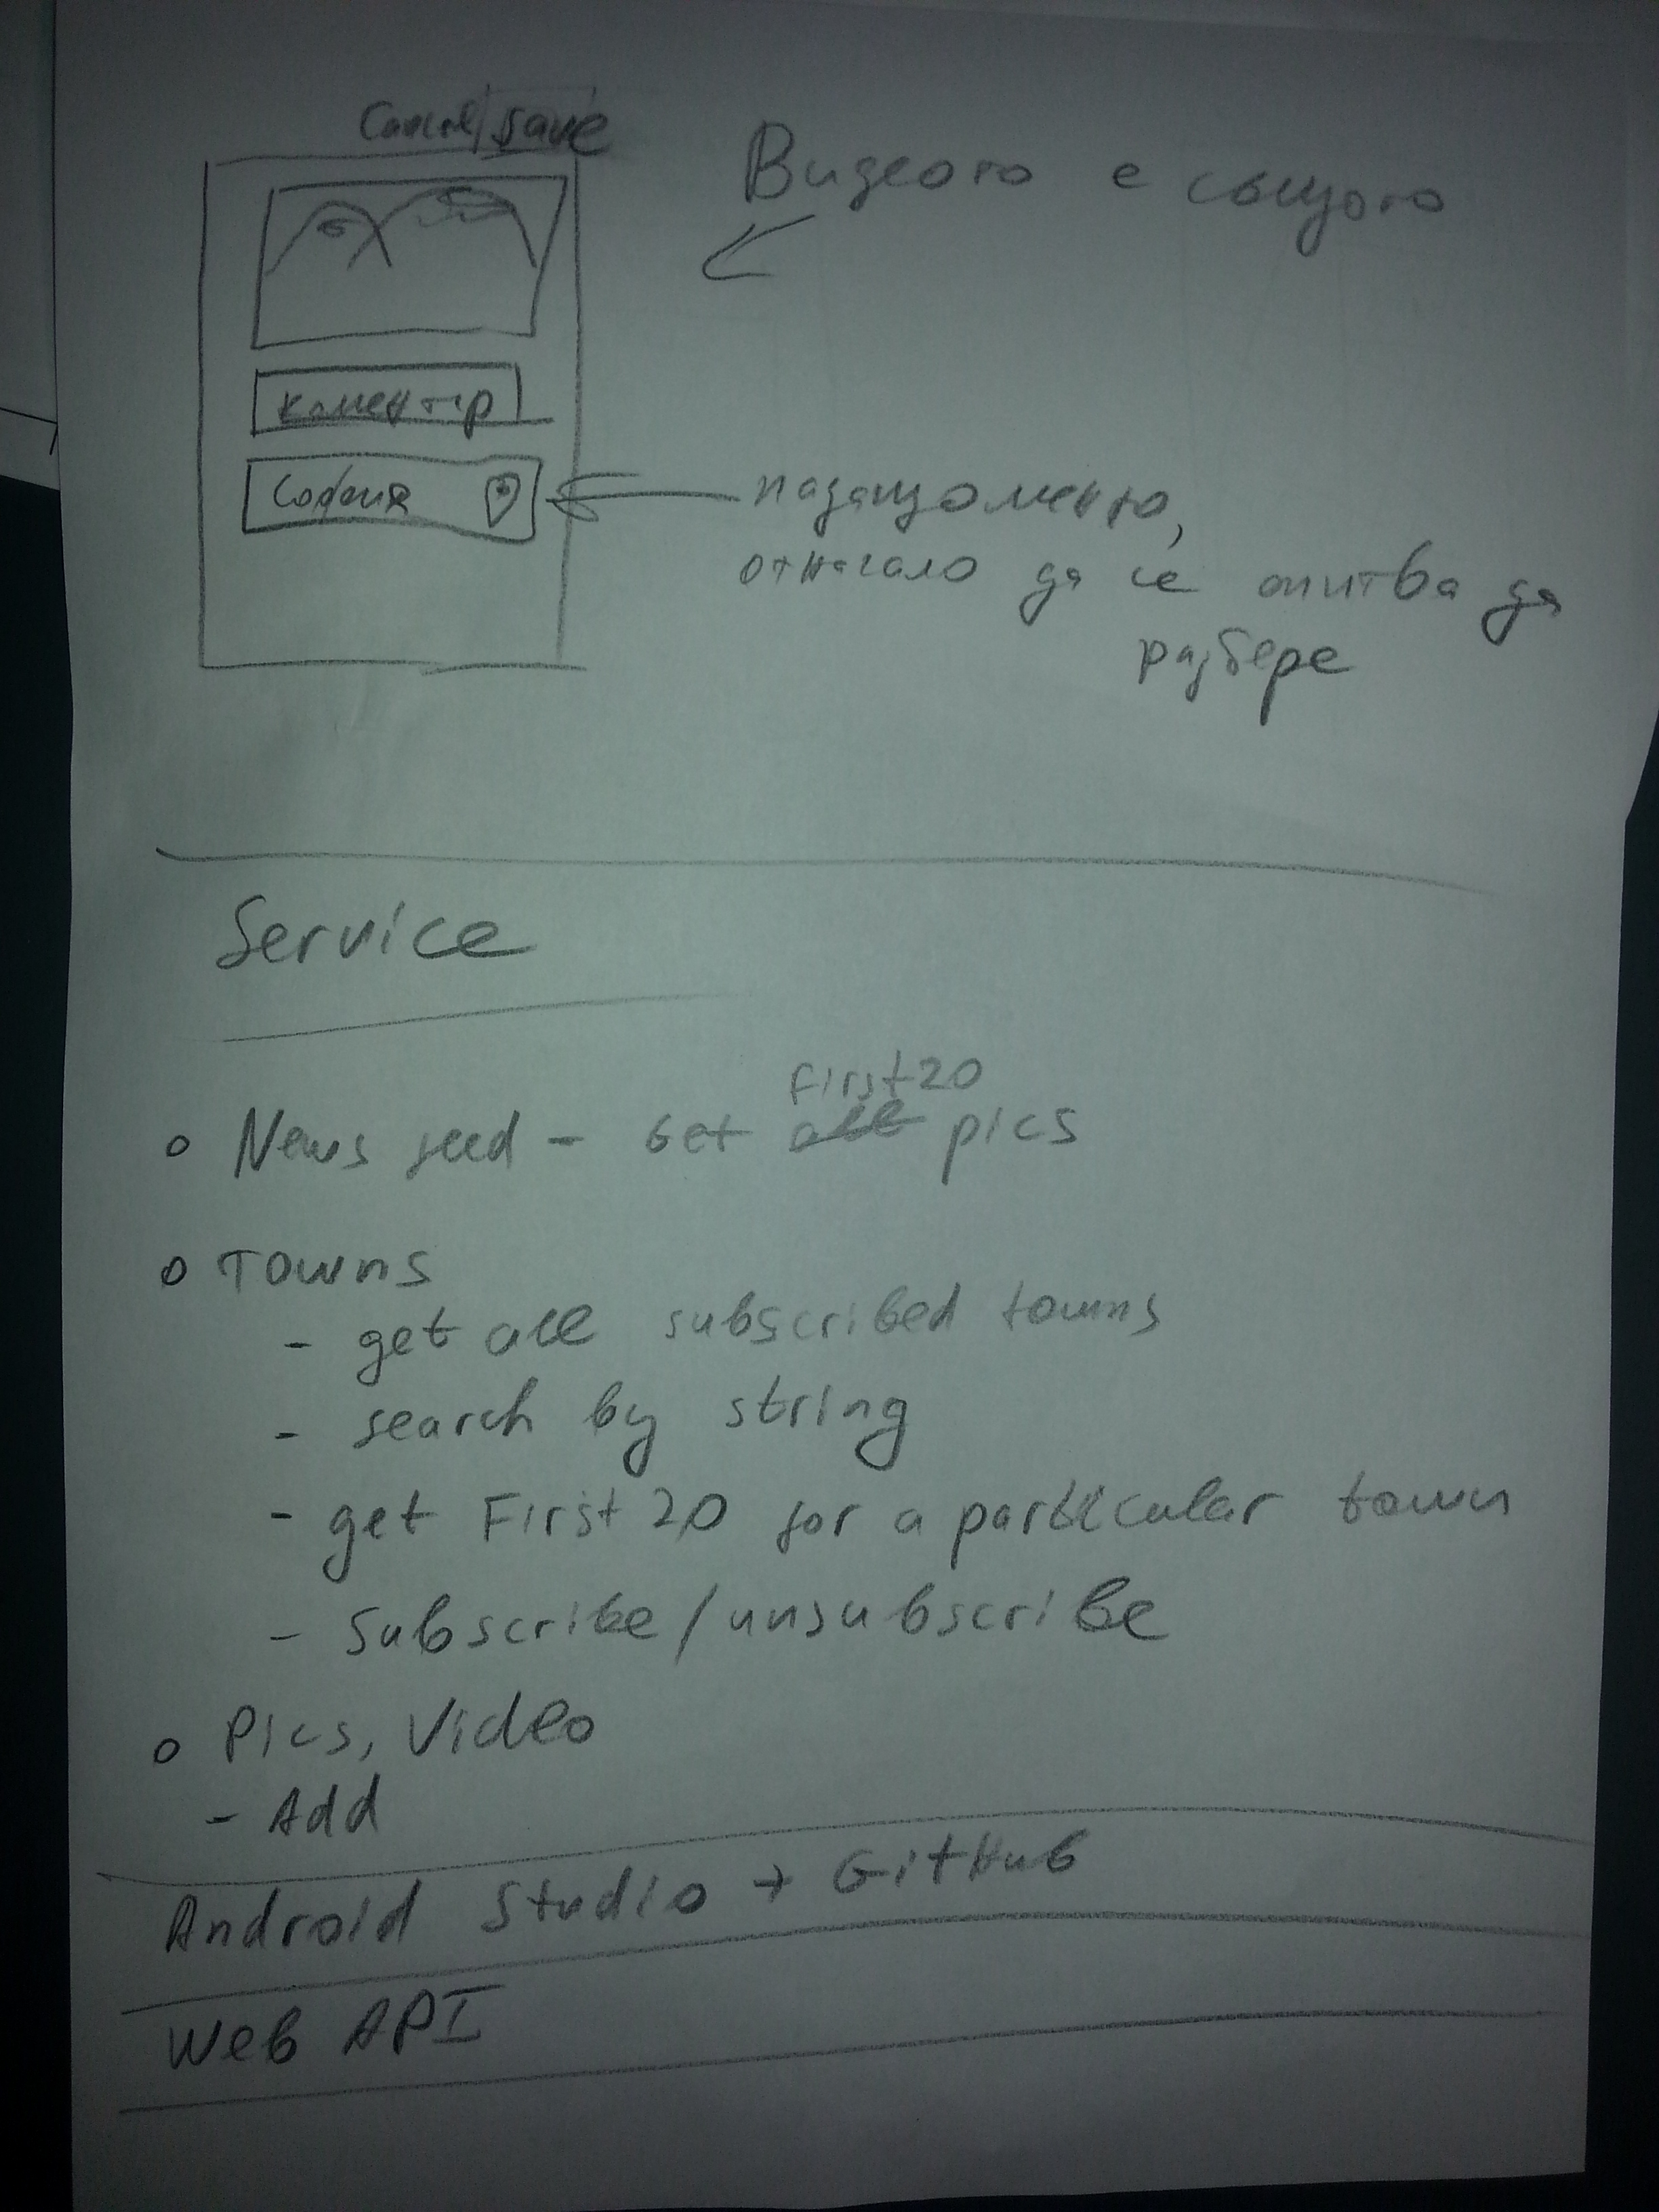 Cancel/save
Видеото е същото
коментар
София
падащо меню,
отначало да се опитва да
разбере
Service
First 20
o News feed - Get all pics
o Towns
- get all subscribed towns
- search by string
- get First 20 for a particular town
- Subscribe/unsubscribe
o Pics, Video
- Add
Android Studio + GitHub
Web API